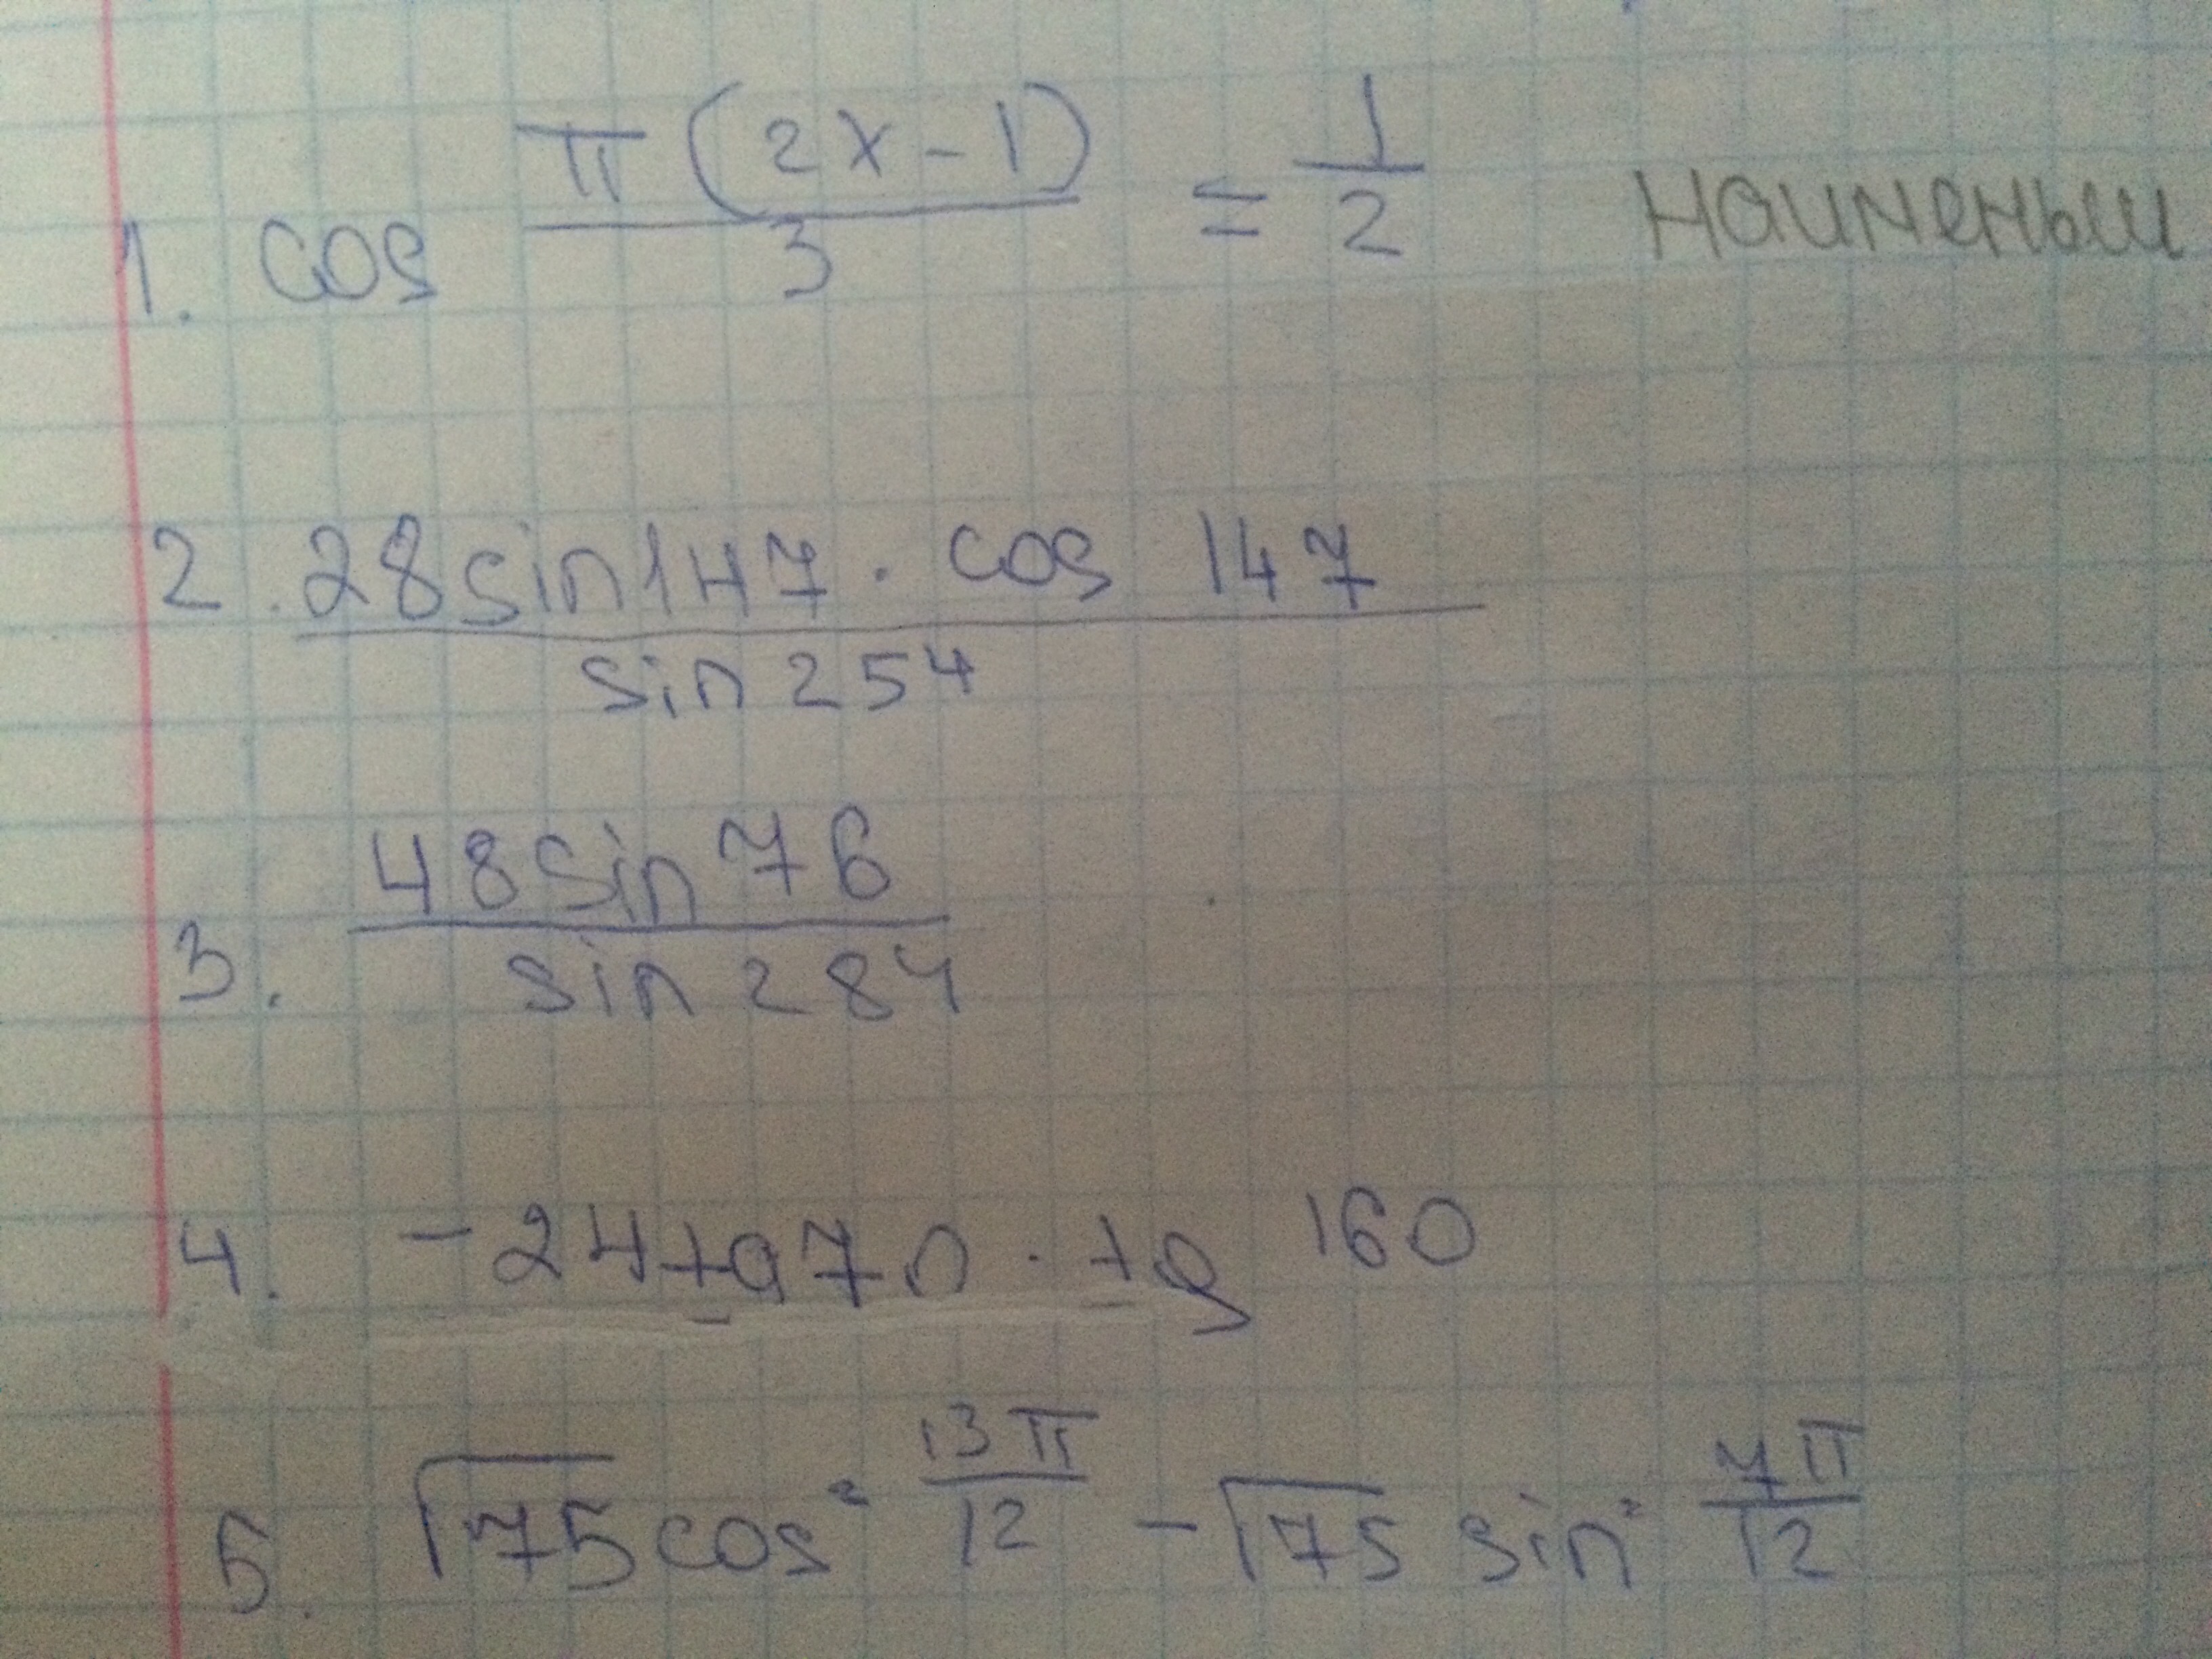 1. cos π(2x-1)/3 = 1/2 наименьш
2. 28sin147 · cos 147 / sin 254
3. 48sin76 / sin 284
4. -24tg70 · tg 160
5. √75cos² 13π/12 - √75 sin² 7π/12